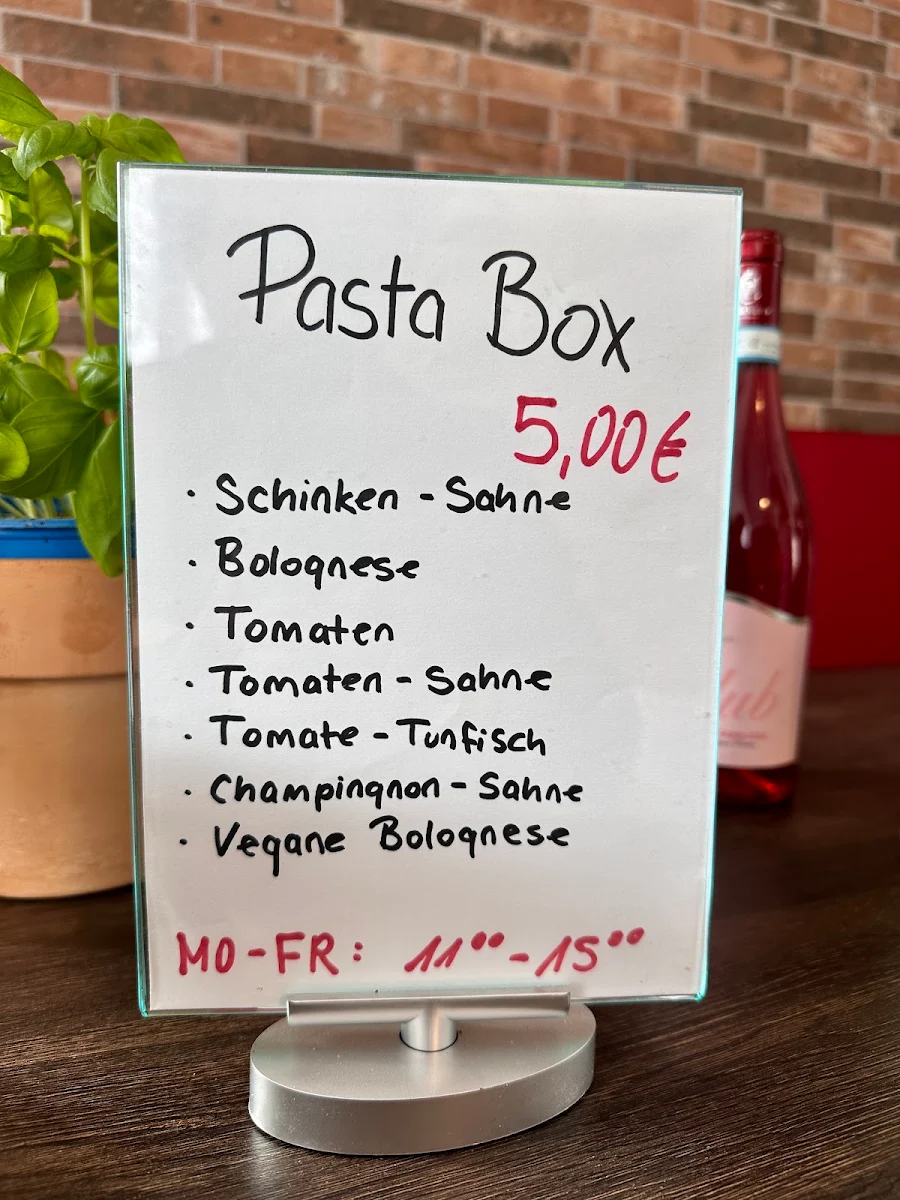 Pasta Box
5,00€
· Schinken - Sahne
· Bolognese
· Tomaten
· Tomaten - Sahne
· Tomate - Tunfisch
· Champingnon - Sahne
· Vegane Bolognese
MO-FR: 11⁰⁰-15⁰⁰